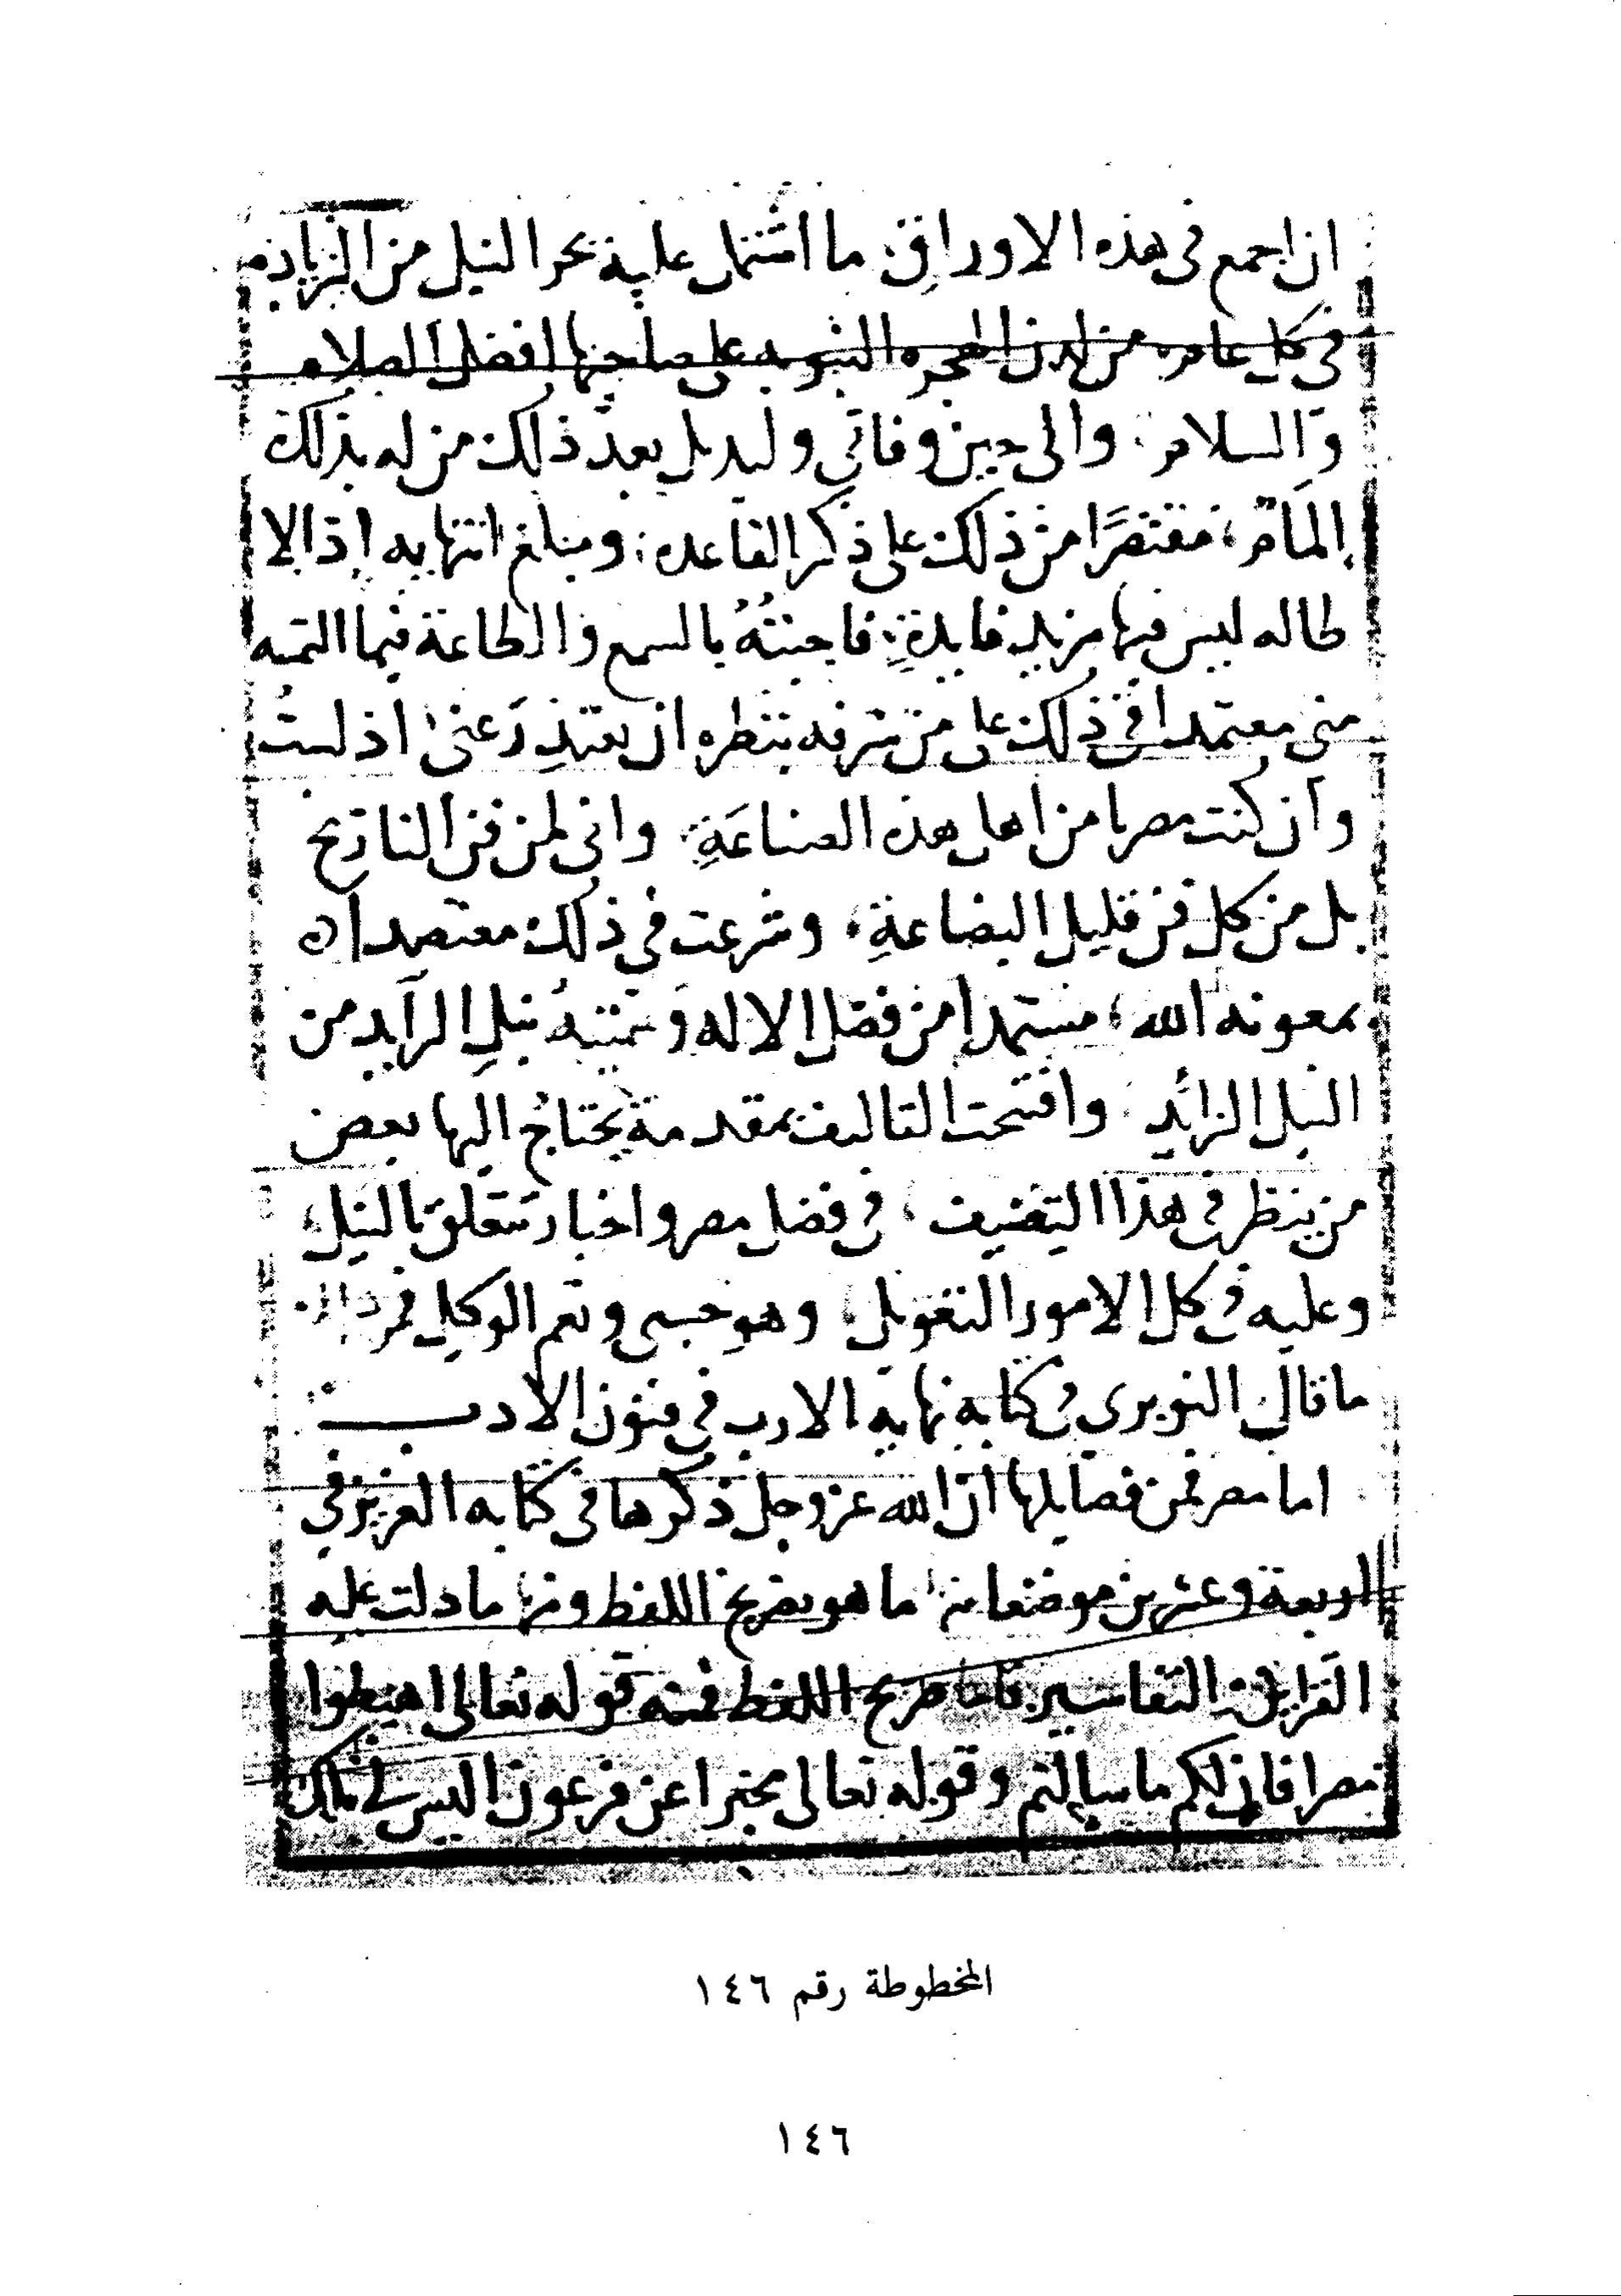 ان اجمع في هذه الاوراق ما اشتمل عليه بحر النيل من الزياده
في كل عام من لدن الهجره النبويه على صاحبها افضل الصلاه
والسلام والى حين وفاتي وليذيل بعد ذلك من له بذلك
إلمام، مقتصرًا من ذلك على ذكر القاعده ومبلغ انتهايه إذ الا
طاله ليس فيها مزيد فايدةٍ فاجبتهُ بالسمع والطاعة فيما التمسه
مني معتمدا في ذلك على من شرفه بنظره ان يعتذِر عني اذ لستُ
وان كنت مصريا من اهل هذه الصناعَةِ واني لمن فن التاريخ
بل من كل فن قليل البضاعةِ، وشرعت في ذلك معتصدا
بمعونه الله، مستمدا من فضل الاله و نيلِ الرايد من
النيل الزائد وافتتحت التاليف بمقدمة يحتاجُ اليها بعض
من ينظر في هذا التصنيف، في فضل مصر واخبار تتعلق بالنيل،
وعليه في كل الامور التعويل، وهو حسبي ونعم الوكيل فمن ذالك
ما قال النويري في كتابه نهايه الارب في فنون الادب
اما مصر فمن فضايلها ان الله عز وجل ذكرها في كتابه العزيز في
اربعة وعشرين موضعا منها ما هو بصريح اللفظ ومنها ما دلت عليه
القراين والتفاسير فاما صريح اللفظ فمنه قوله تعالى اهبطوا
مصرا فان لكم ما سالتم وقوله تعالى مخبرا عن فرعون اليس لي ملك
المخطوطة رقم ١٤٦
١٤٦